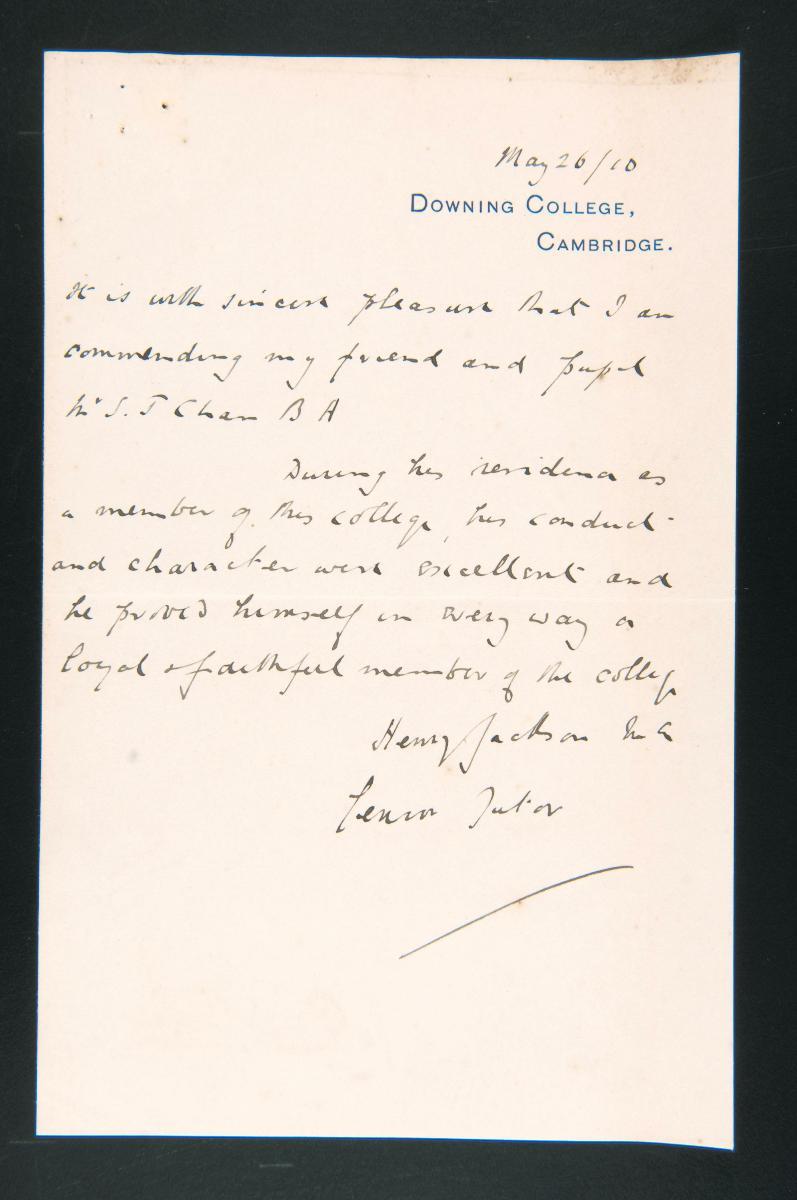 May 26/10
DOWNING COLLEGE,
CAMBRIDGE.
It is with sincere pleasure that I am
commending my friend and pupil
Mr S. T Chan B A
During his residence as
a member of this college, his conduct
and character were excellent and
he proved himself in every way a
loyal & faithful member of the college
Henry Jackson M A
Senior Tutor